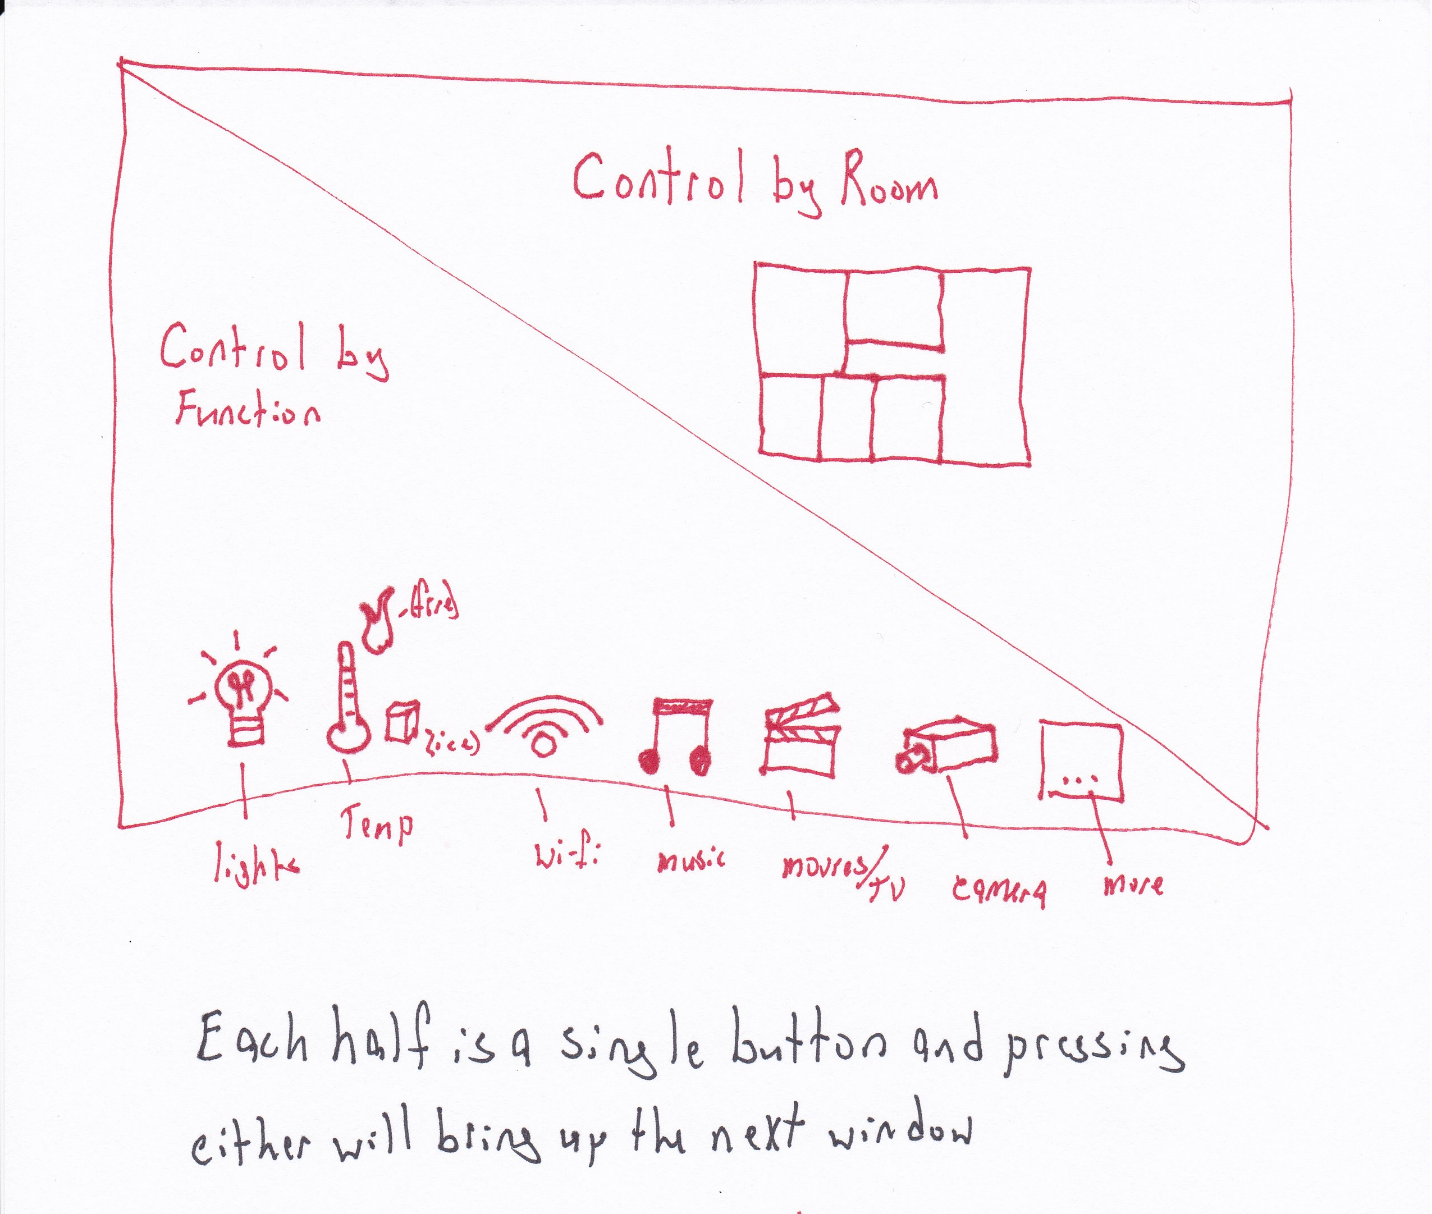 Control by Room
Control by
Function
(fire)
(ice)
...
lights
Temp
wi-fi
music
movies/
TV
camera
more
Each half is a single button and pressing
either will bring up the next window